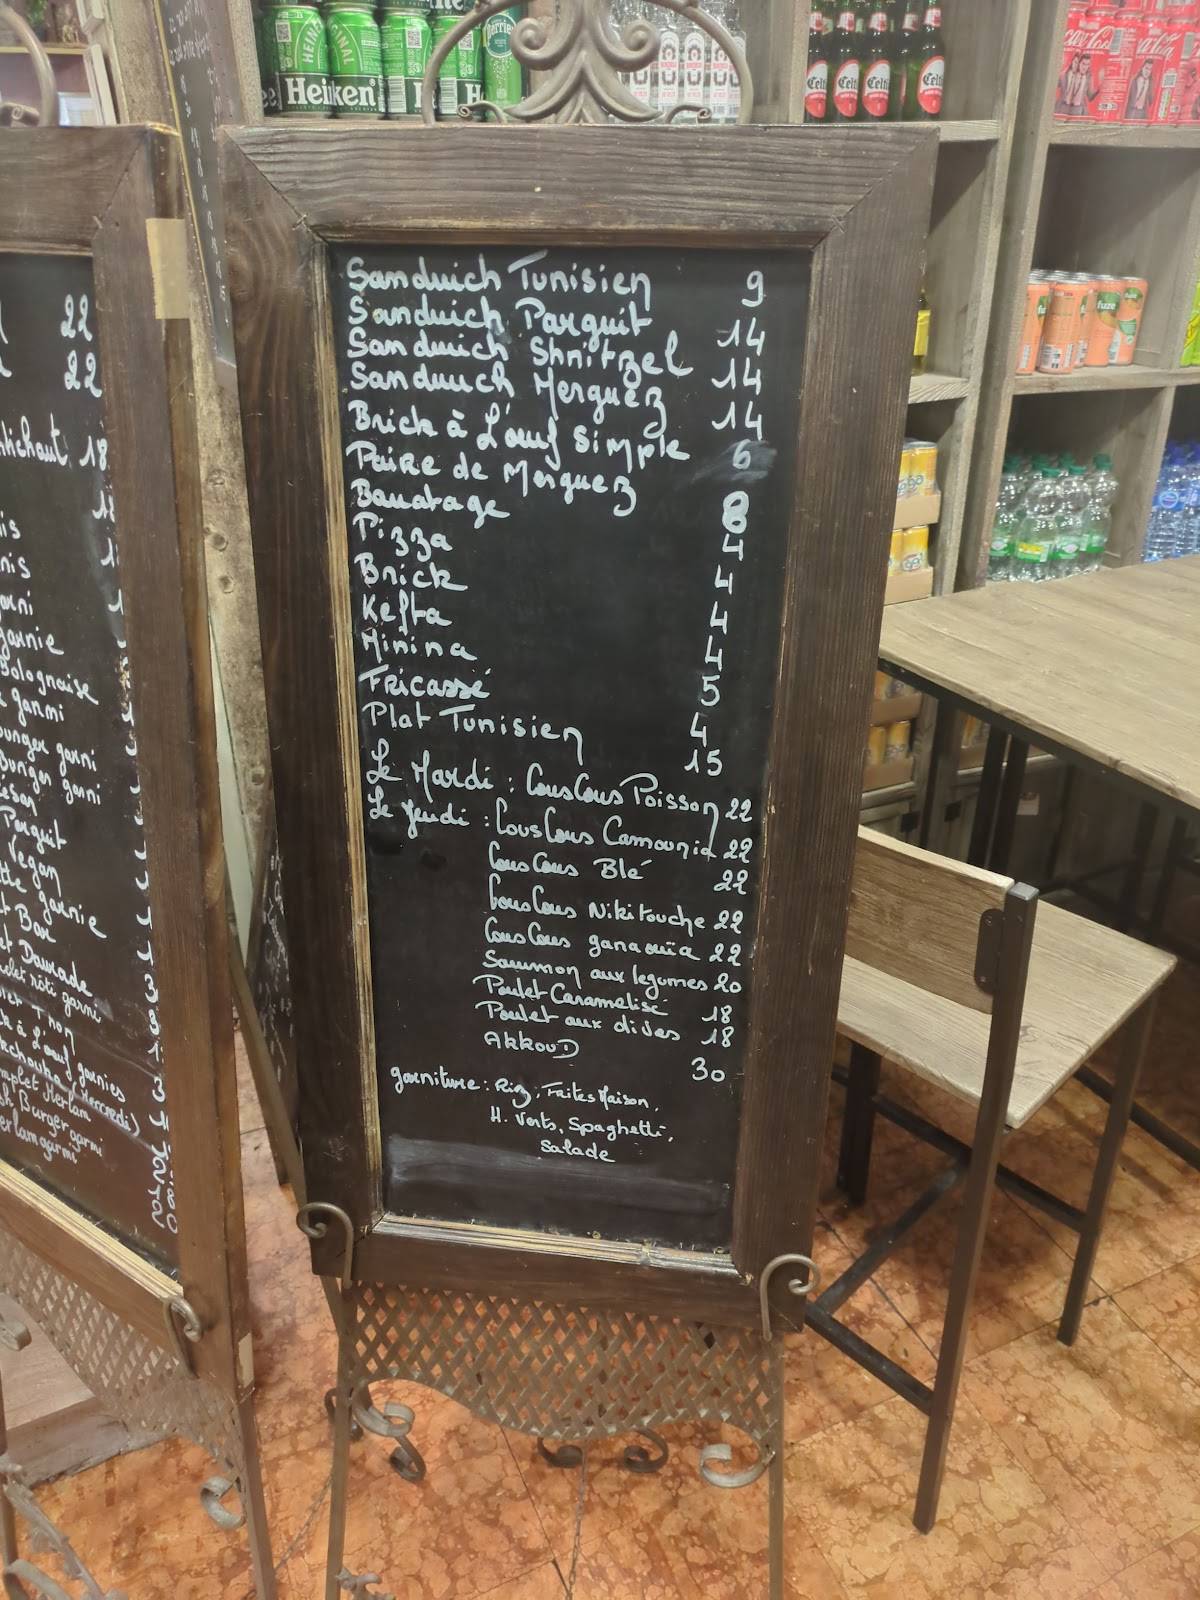 Sandwich Tunisien 9
Sandwich Parguit 14
Sandwich Shnitzel 14
Sandwich Merguez 14
Brick à L'œuf Simple 6
Paire de Merguez 8
Banatage 4
Pizza 4
Brick 4
Kefta 4
Minina 5
Fricassé 4
Plat Tunisien 15
Le Mardi : CousCous Poisson 22
Le Jeudi : CousCous Camounia 22
CousCous Blé 22
CousCous Nikitouche 22
CousCous ganaouïa 22
Saumon aux legumes 20
Poulet Caramelisé 18
Poulet aux olives 18
AKKOUD 30
garniture : Riz, Frites Maison,
H. Verts, Spaghetti,
Salade
22
22
18
garnie
Bolognaise
garni
garni
Burger garni
Vegan
garnie
Bar
Daurade
rôti garni
Thon
à L'œuf garnies
(Mercredi)
Merlan
Burger garni
garni
Heineken
Perrier
Celtia
Coca-Cola
fuze